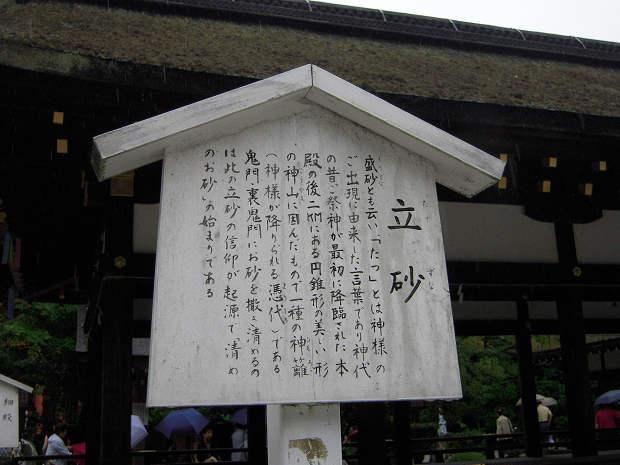 立砂
たつ ずな
盛砂とも云い「たつ」とは神様の
ご出現に由来した言葉であり神代
の昔ご祭神が最初に降臨された本
殿の後二KMにある円錐形の美しい形
の神山に因んだもので一種の神籬
(神様が降りられる憑代)である
鬼門、裏鬼門にお砂を撒き清めるの
は此の立砂の信仰が起源で清め
のお砂」の始まりである
細殿